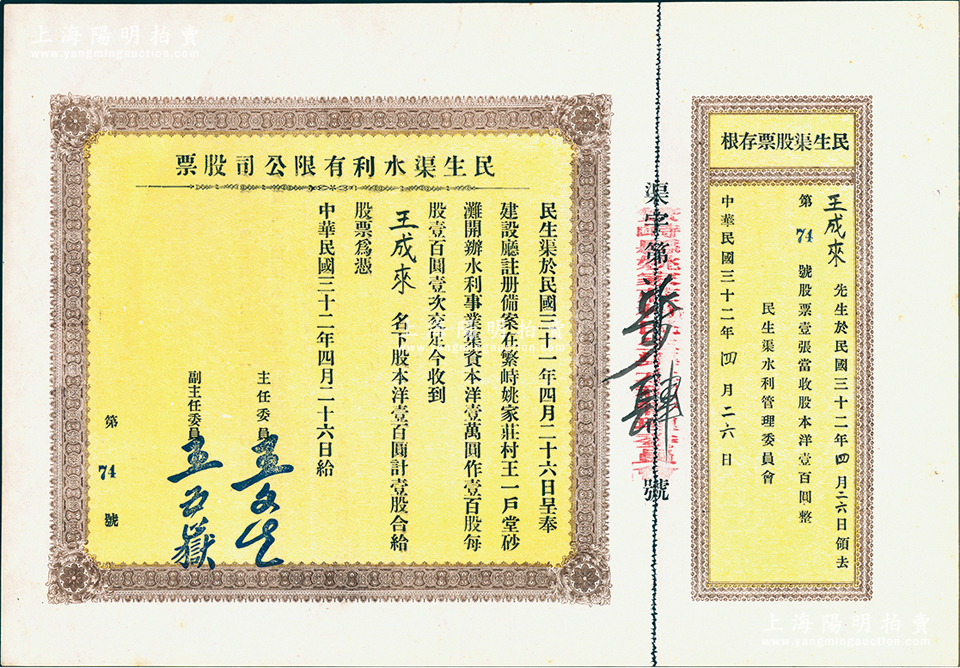 上海陽明拍賣
www.yangmingauction.com
民生渠股票存根
王成來 先生於民國三十二年四月二六日領去
第74號股票壹張當收股本洋壹百圓整
民生渠水利管理委員會
中華民國三十二年四月二六日
渠字第柒肆號
民生渠水利有限公司股票
民生渠於民國三十一年四月二十六日呈奉
建設廳註册備案在繁峙姚家莊村王一戶堂砂
灘開辦水利事業集資本洋壹萬圓作壹百股每
股壹百圓壹次交足今收到
王成來 名下股本洋壹百圓計壹股合給
股票爲憑
中華民國三十二年四月二十六日給
主任委員 王文生
副主任委員 王五嶽
第74號
上海陽明拍賣
www.yangmingauction.com
上海陽明拍賣
www.yangmingauction.com